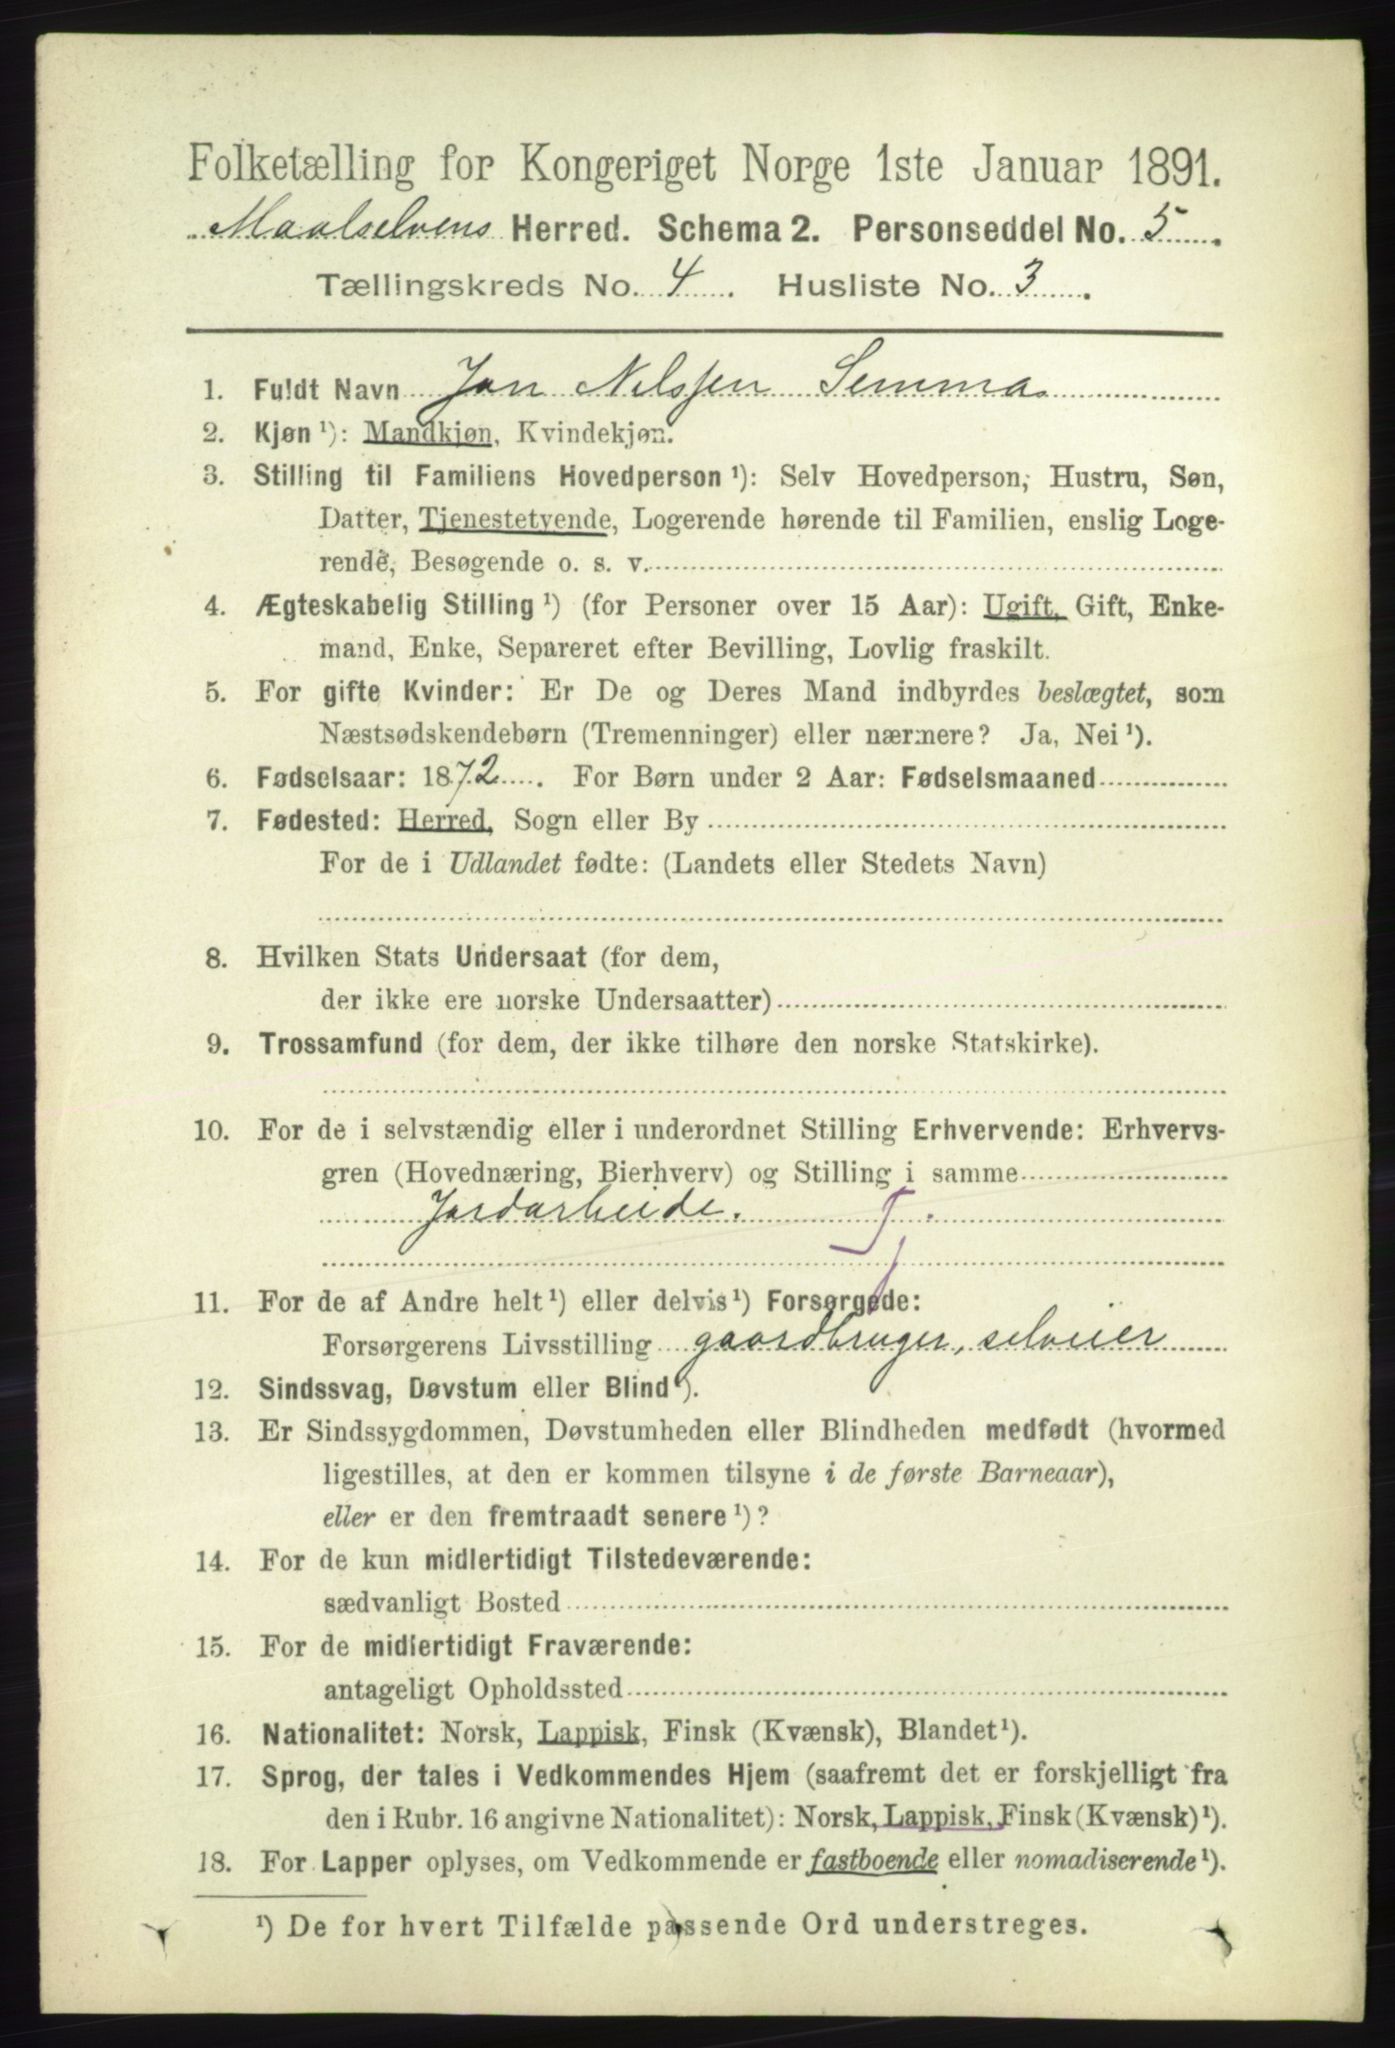 Folketælling for Kongeriget Norge 1ste Januar 1891.
Maalselvens Herred. Schema 2. Personseddel No. 5.
Tællingskreds No. 4. Husliste No. 3.
1. Fuldt Navn Jon Nilssen Semma
2. Kjøn ¹): Mandkjøn, Kvindekjøn.
3. Stilling til Familiens Hovedperson ¹): Selv Hovedperson, Hustru, Søn,
Datter, Tjenestetyende, Logerende hørende til Familien, enslig Loge-
rende, Besøgende o. s. v.
4. Ægteskabelig Stilling ¹) (for Personer over 15 Aar): Ugift, Gift, Enke-
mand, Enke, Separeret efter Bevilling, Lovlig fraskilt.
5. For gifte Kvinder: Er De og Deres Mand indbyrdes beslægtet, som
Næstsødskendebørn (Tremenninger) eller nærmere? Ja, Nei ¹).
6. Fødselsaar: 1872. For Børn under 2 Aar: Fødselsmaaned
7. Fødested: Herred, Sogn eller By
For de i Udlandet fødte: (Landets eller Stedets Navn)
8. Hvilken Stats Undersaat (for dem,
der ikke ere norske Undersaatter)
9. Trossamfund (for dem, der ikke tilhøre den norske Statskirke).
10. For de i selvstændig eller i underordnet Stilling Erhvervende: Erhvervs-
gren (Hovednæring, Bierhverv) og Stilling i samme
Jordarbeide.
11. For de af Andre helt ¹) eller delvis ¹) Forsørgede:
Forsørgerens Livsstilling gaardbruger, selveier
12. Sindssvag, Døvstum eller Blind ¹).
13. Er Sindssygdommen, Døvstumheden eller Blindheden medfødt (hvormed
ligestilles, at den er kommen tilsyne i de første Barneaar),
eller er den fremtraadt senere ¹)?
14. For de kun midlertidigt Tilstedeværende:
sædvanligt Bosted
15. For de midlertidigt Fraværende:
antageligt Opholdssted
16. Nationalitet: Norsk, Lappisk, Finsk (Kvænsk), Blandet ¹).
17. Sprog, der tales i Vedkommendes Hjem (saafremt det er forskjelligt fra
den i Rubr. 16 angivne Nationalitet): Norsk, Lappisk, Finsk (Kvænsk) ¹).
18. For Lapper oplyses, om Vedkommende er fastboende eller nomadiserende ¹).
¹) De for hvert Tilfælde passende Ord understreges.